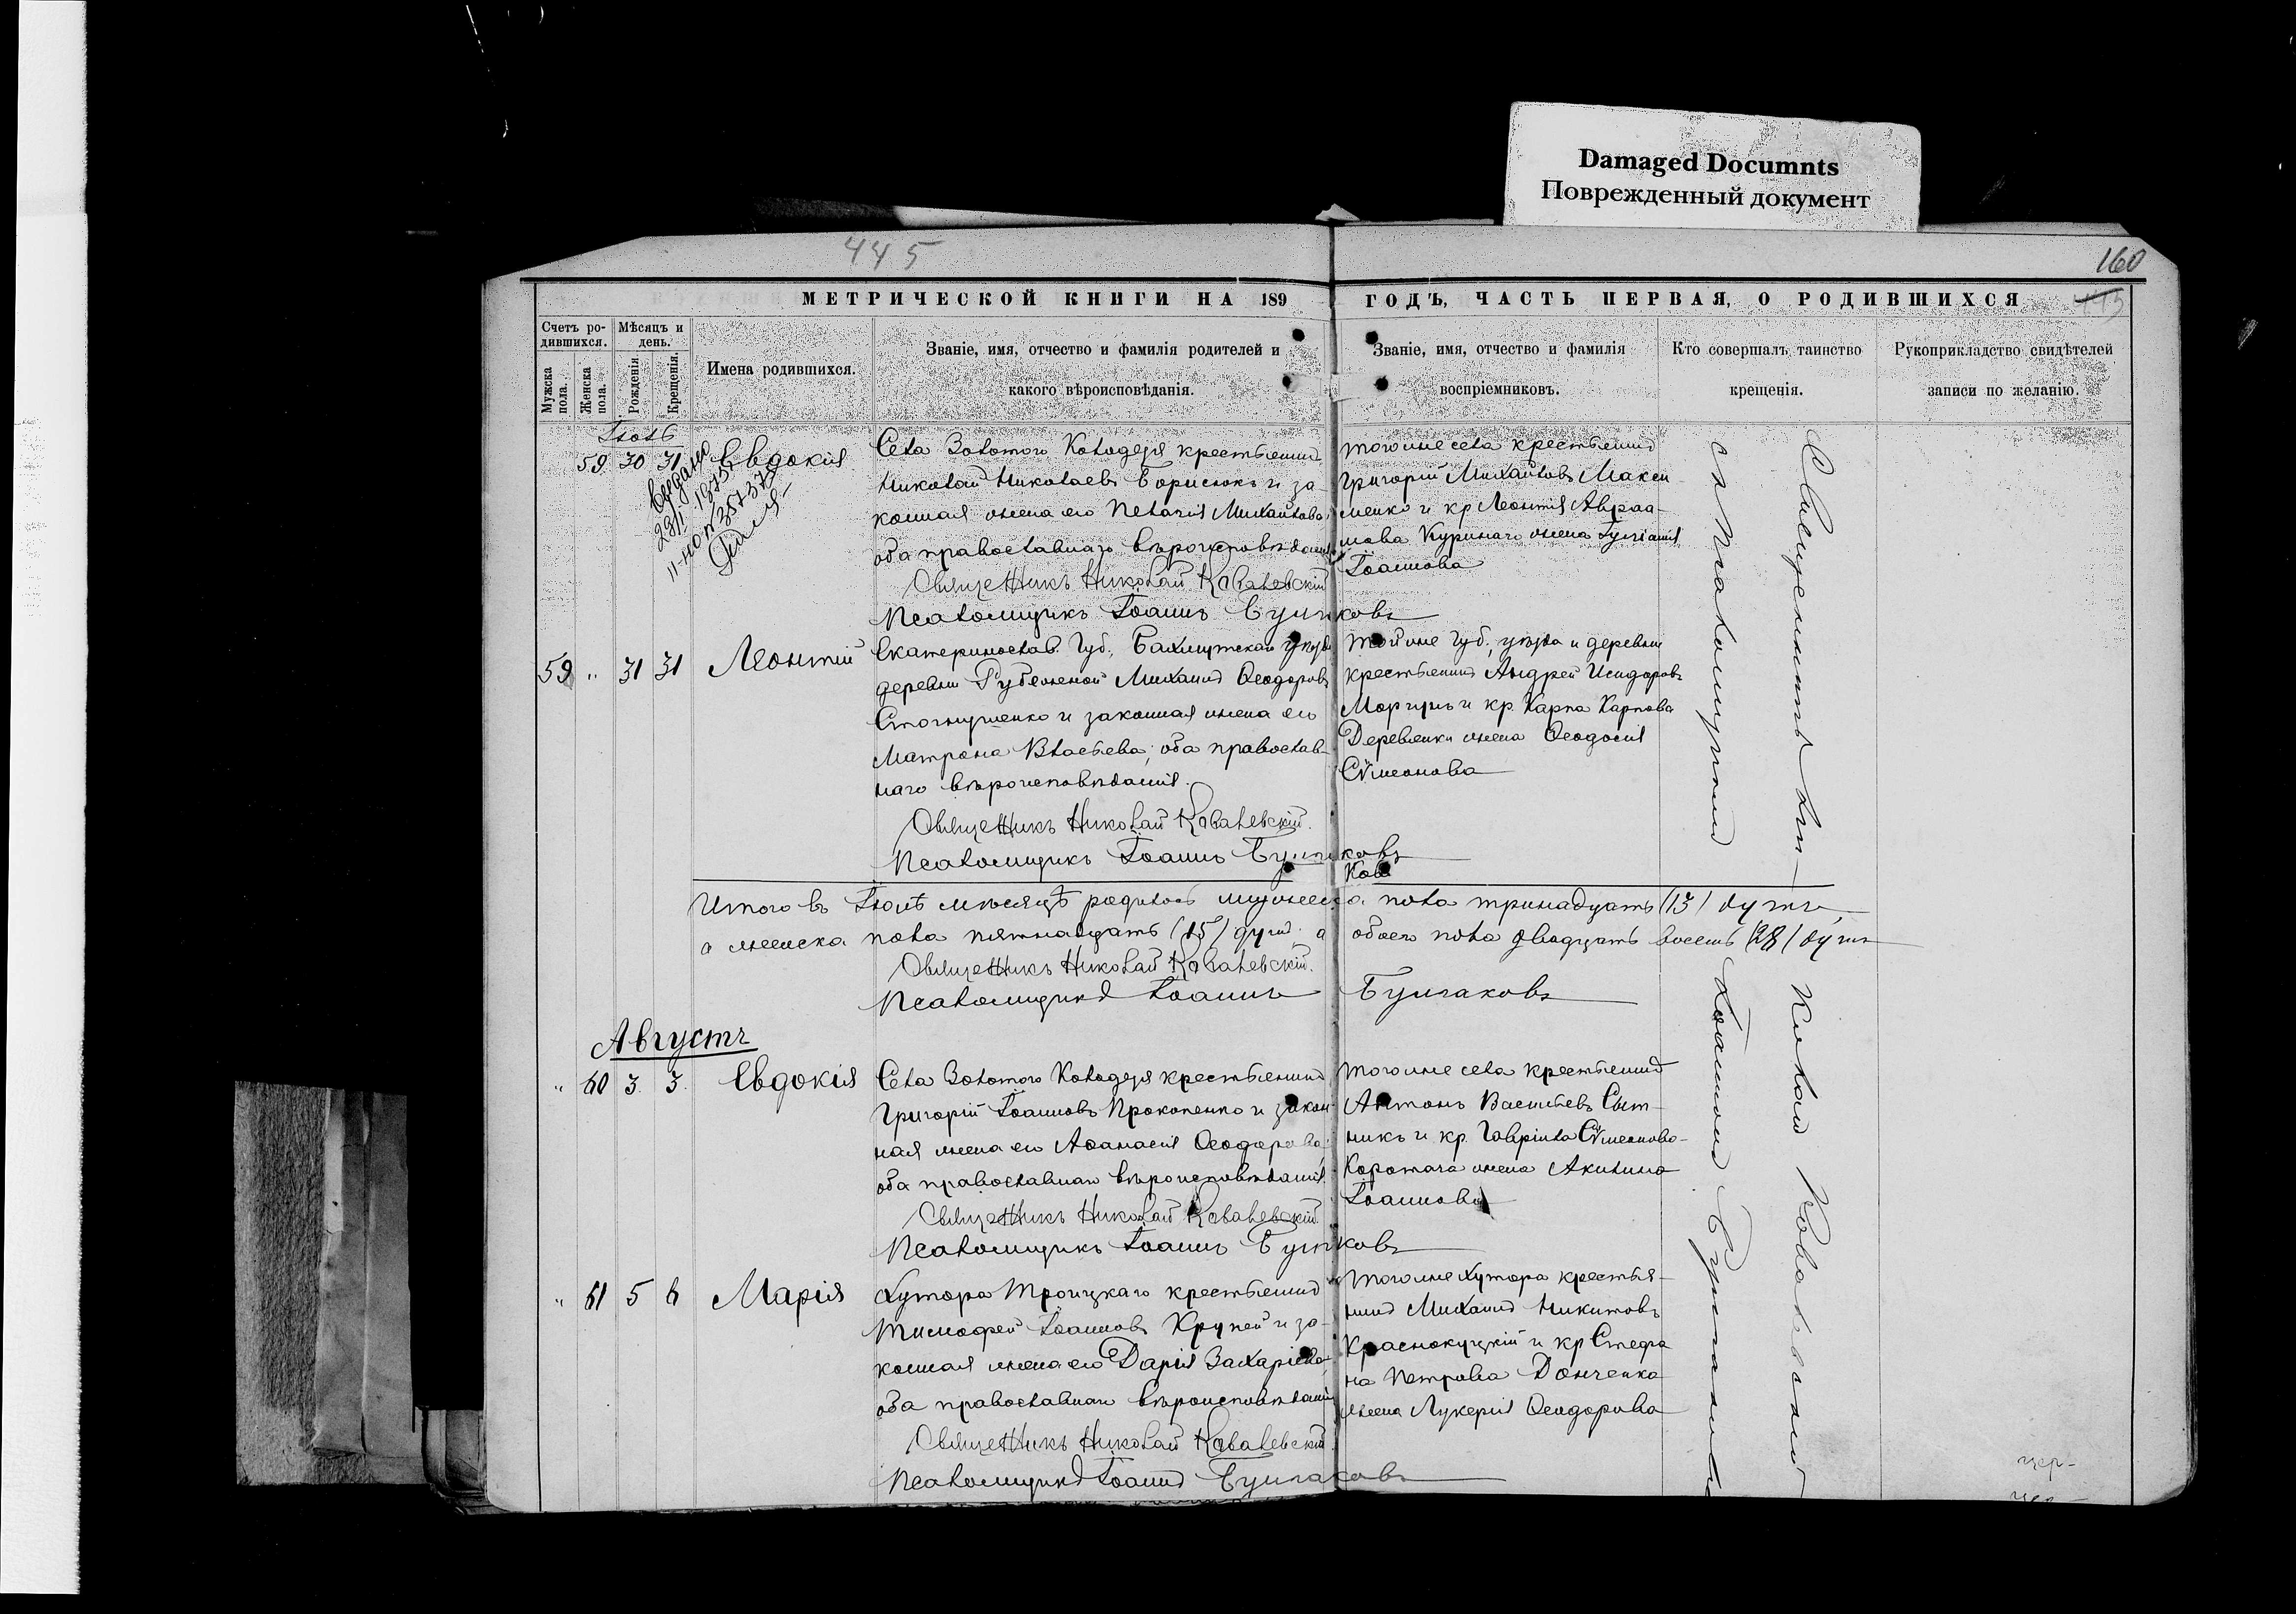 Damaged Documnts
Поврежденный документ
445
160
МЕТРИЧЕСКОЙ КНИГИ НА 189 ГОДЪ, ЧАСТЬ ПЕРВАЯ, О РОДИВШИХСЯ
Счетъ ро-
дившихся.
Мужска
пола.
Женска
пола.
Мѣсяцъ и
день.
Рожденія
Крещенія.
Имена родившихся.
Званіе, имя, отчество и фамилія родителей и
какого вѣроисповѣданія.
Званіе, имя, отчество и фамилія
воспріемниковъ.
Кто совершалъ таинство
крещенія.
Рукоприкладство свидѣтелей
записи по желанію.
Іюль
59 30 31 Евдокія
Села Золотого Колодезя крестьянинъ
Николай Николаевъ Борисюкъ и за-
конная жена его Пелагія Михайлова,
оба православнаго вѣроисповѣданія
Священникъ Николай Ковалевскій
Псаломщикъ Іоаннъ Булгаковъ
тогоже села крестьянинъ
Григорій Михайловъ Макси
менко и кр Леонтія Авраа-
мова Куринаго жена
Іоаннова
59 " 31 31 Леонтій
Екатериносл. Губ., Бахмутскаго уѣзда
деревни Рубежной Михаилъ Ѳеодоровъ
Стогнушенко и законная жена его
Матрона Власьева; оба православ-
наго вѣроисповѣданія.
Священникъ Николай Ковалевскій.
Псаломщикъ Іоаннъ Булгаковъ
тойже Губ., уѣзда и деревни
крестьянинъ Андрей Исидоровъ
и кр. Карпа Карпова
Деревянки жена Ѳеодосія
Сѵмеонова
Итого въ Іюлѣ мѣсяцѣ родилось мужеска пола тринадцать (13) душъ,
а женска пола пятнадцать (15) душъ а обоего пола двадцать восемь (28) душъ
Священникъ Николай Ковалевскій.
Псаломщикъ Іоаннъ Булгаковъ
Августъ
" 60 3. 3. Евдокія
Села Золотого Колодезя крестьянинъ
Григорій Іоанновъ Прокопенко и закон-
ная жена его Аѳанасія Ѳеодорова;
оба православнаго вѣроисповѣданія.
Священникъ Николай Ковалевскій
Псаломщикъ Іоаннъ Булгаковъ
тогоже села крестьянинъ
Антонъ Васильевъ Сыт-
никъ и кр. Гавріила Сѵмеонова
Коротача жена Акилина
Іоаннова
" 61 5 6 Марія
Хутора Троицкаго крестьянинъ
Тимофей Іоанновъ Крупей и за-
конная жена его Дарія Захаріева
оба православнаго вѣроисповѣданія
Священникъ Николай Ковалевскій.
Псаломщикъ Іоаннъ Булгаковъ
тогоже хутора крестья-
нинъ Михаилъ Никитовъ
Краснокутскій и кр Стефа
на Петрова Донченка
жена Лукерія Ѳеодорова
Священникъ Николай Ковалевскій
съ псаломщикомъ Іоанномъ Булгаковымъ